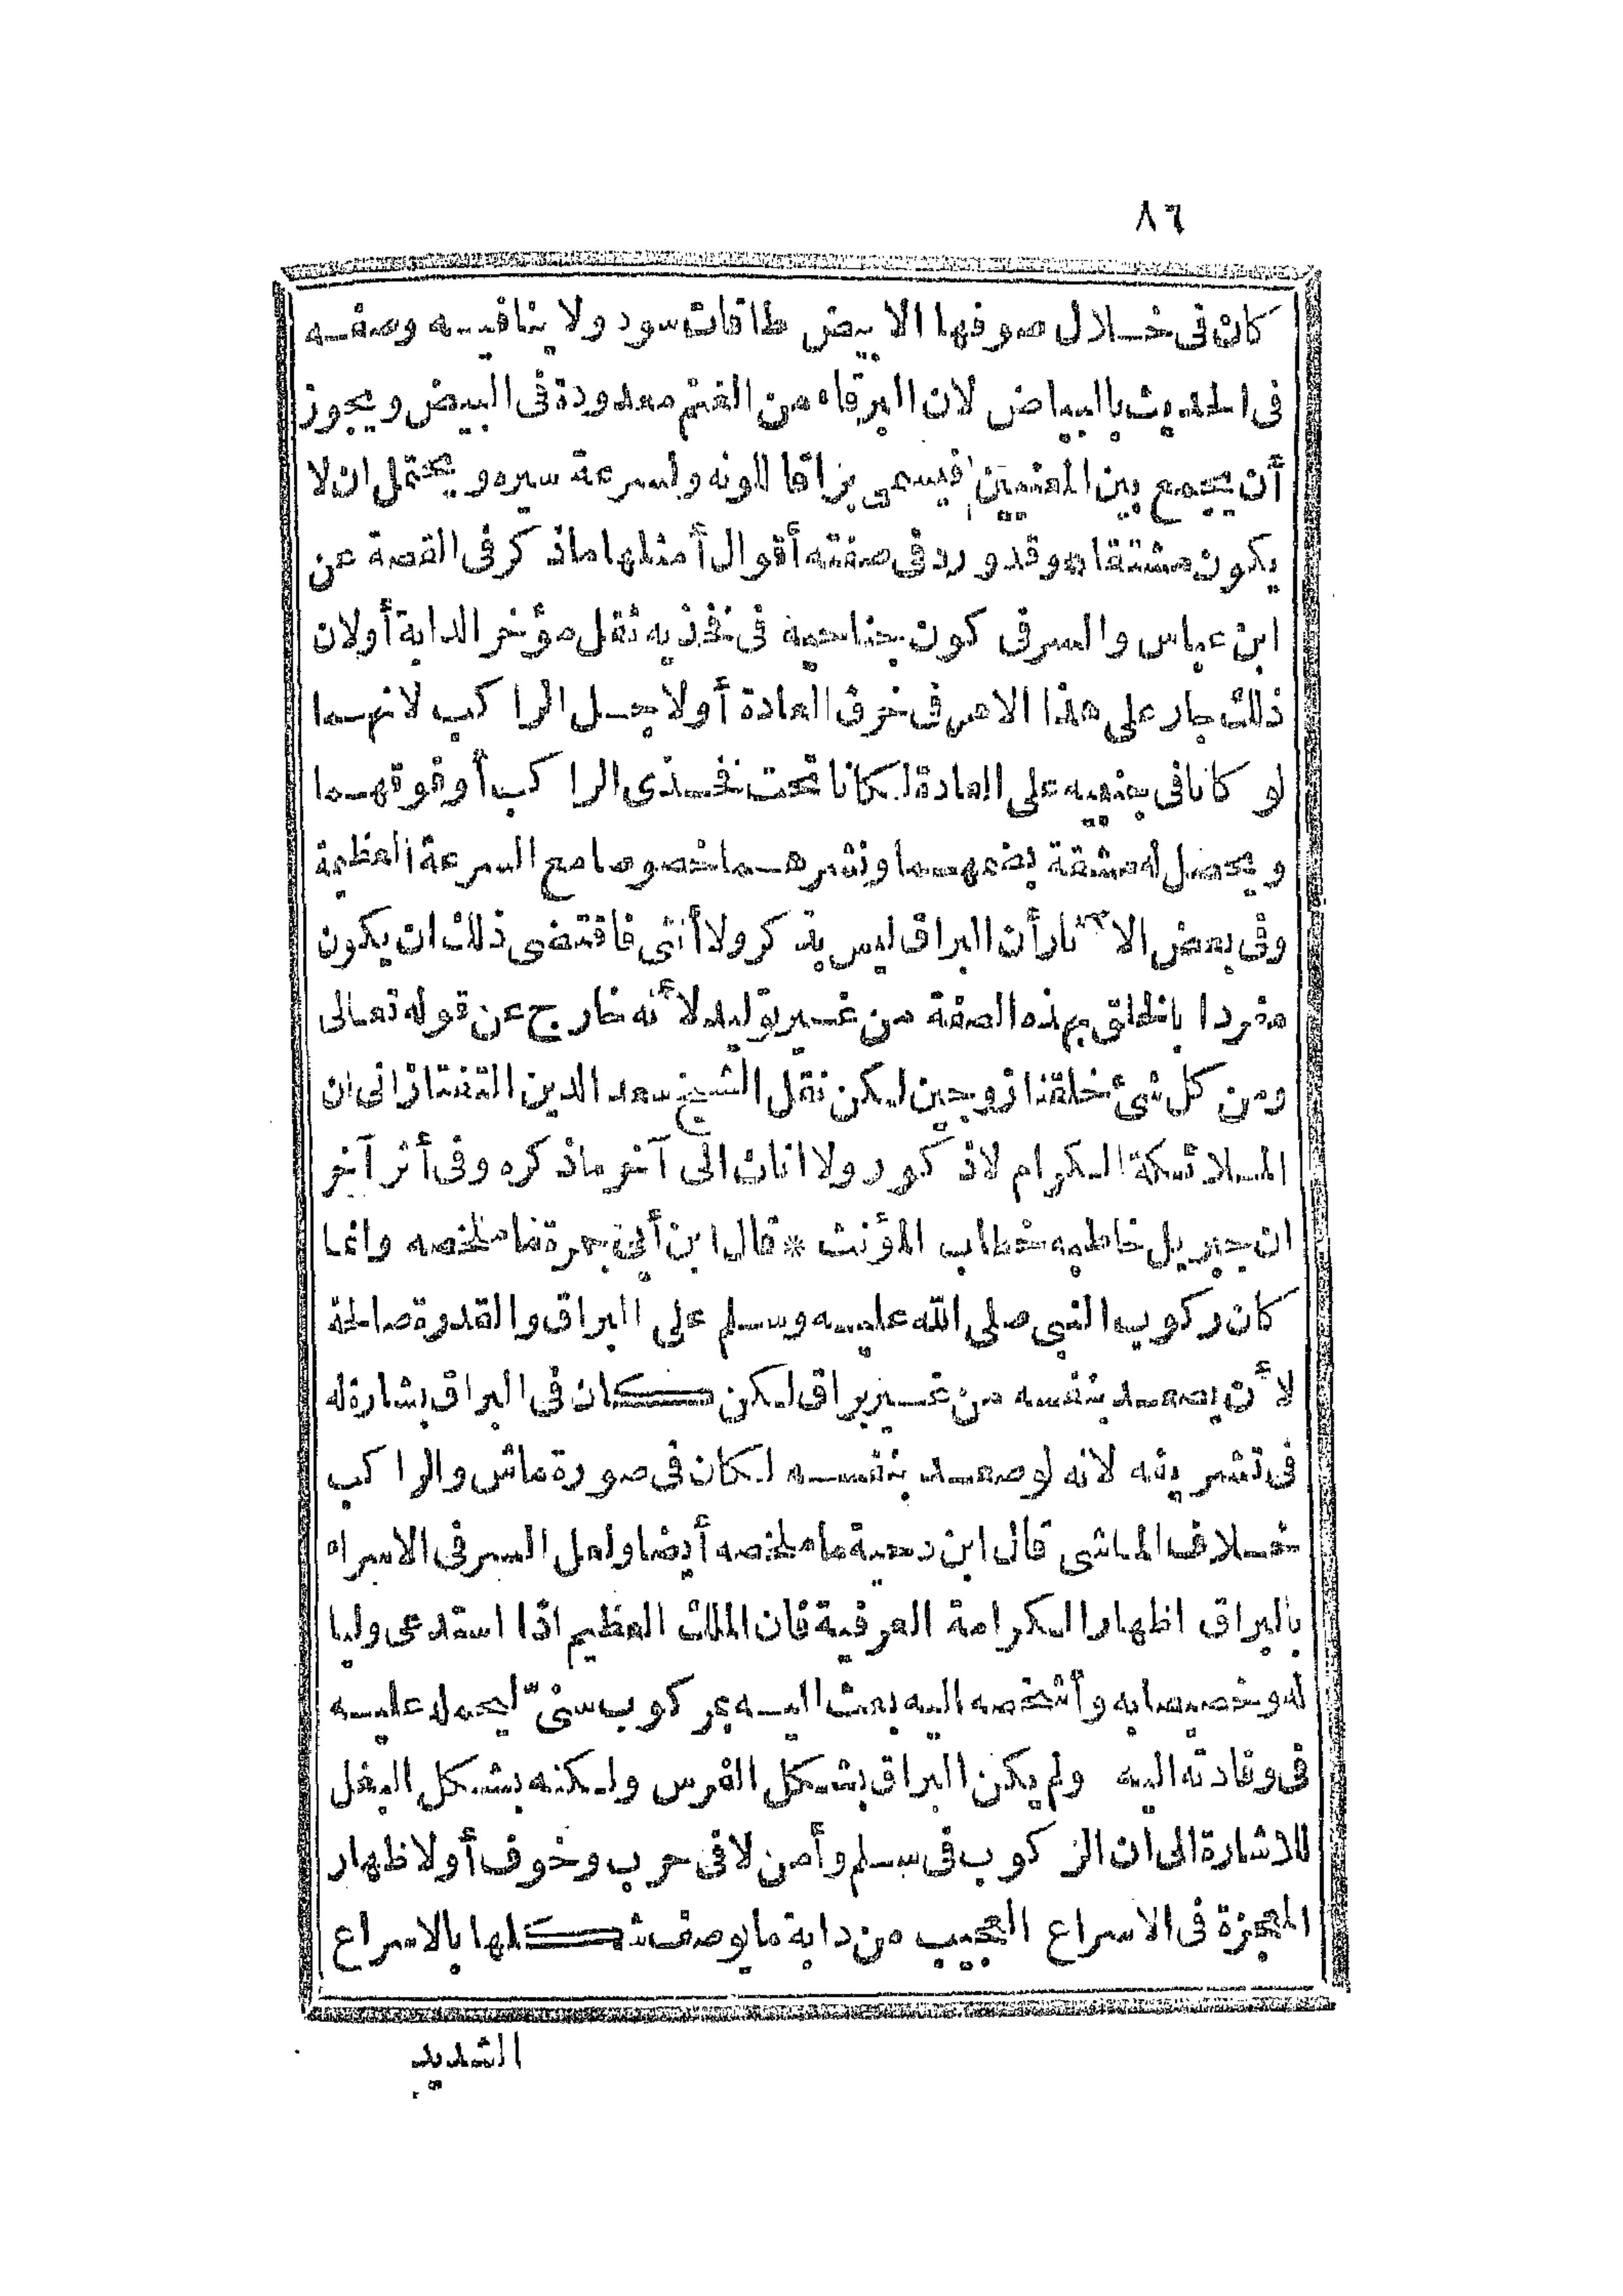 ٨٦
كان فى خلال صوفها الابيض طاقات سود ولا ينافيه وصفه
فى الحديث بالبياض لان البرقاء من الغنم معدودة فى البيض ويجوز
أن يجمع بين المعنيين فيسمى براقا للونه ولسرعة سيره ويحتمل ان لا
يكون مشتقا اه وقد ورد فى صفته أقوال أمثلها ماذكر فى القصة عن
ابن عباس والسر فى كون جناحيه فى فخذيه ثقل مؤخر الدابة أولان
ذلك جار على هذا الامر فى خرق العادة أولاجل الراكب لانهما
لو كانا فى جنبيه على العادة لكانا تحت فخذى الراكب أوفوقهما
ويحصل له مشقة بضمهما ونشرهما خصوصا مع السرعة العظيمة
وفى بعض الا ثار أن البراق ليس بذكر ولا أنثى فاقتضى ذلك ان يكون
مفردا بالخلق بهذه الصفة من غير توليد لأنه خارج عن قوله تعالى
ومن كل شئ خلقنا زوجين لكن نقل الشيخ سعد الدين التفتازانى ان
الملائكة الكرام لاذكور ولا اناث الى آخر ماذكره وفى أثر آخر
ان جبريل خاطبه خطاب المؤنث * قال ابن أبى جمرة فما ملخصه وانما
كان ركوب النبى صلى الله عليه وسلم على البراق والقدرة صالحة
لأن يصعد بنفسه من غير براق لكن كان فى البراق بشارة له
فى تشريفه لانه لوصعد بنفسه لكان فى صورة ماش والراكب
خلاف الماشى قال ابن دحية ما ملخصه أيضا ولعل السر فى الاسراء
بالبراق اظهارا لكرامة العرفية فان الملك العظيم اذا استدعى وليا
له وخصيصابه وأشخصه اليه بعث اليه بمركوب سنىّ ليحمله عليه
فى وفادته اليه ولم يكن البراق بشكل الفرس ولكنه بشكل البغل
للاشارة الى ان الركوب فى سلم وأمن لا فى حرب وخوف أولاظهار
المعجزة فى الاسراع العجيب من دابة ما يوصف شكلها بالاسراع
الشديد